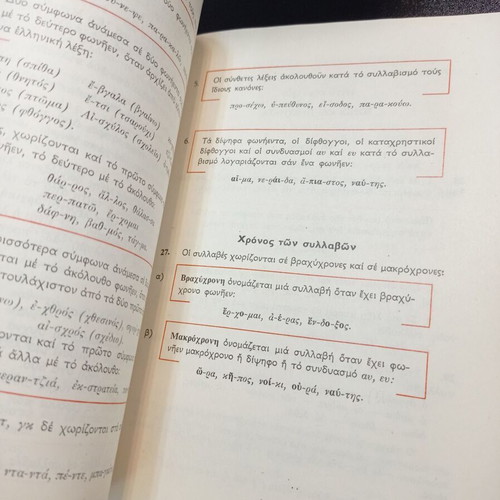 δύο σύμφωνα ἀνάμεσα σέ δύο φωνήεντα
μέ τό δεύτερο φωνῆεν, ὅταν ἀρχίζει
ἑλληνική λέξη:
(σπίθα) ἔ-βγαλα (βγαίνω)
(θνητός) ἔ-τσι (τσαρούχι)
(πτῶμα) Αἰ-σχύλος (σχολεῖο)
(φθόγγος).
χωρίζονται καί τό πρῶτο σύμφωνο
τό δεύτερο μέ τό ἀκόλουθο
θάρ-ρος, ἄλ-λος,
περ-πατῶ, ἔρ-χομαι
δάφ-νη, βαθ-μός,
σύμφωνα ἀνάμεσα σέ
μέ τό ἀκόλουθο φωνῆεν,
τουλάχιστον ἀπό τά δύο πρῶτα
ἐ-χθρός (χθεσινός),
αἰ-σχρός (σχέδιο).
καί τό πρῶτο σύμφωνο
ἄλλα μέ τό ἀκόλουθο:
ἐκ-στρατεία,
γκ δέ χωρίζονται
ντα-ντά, πέ-ντε,
5. Οἱ σύνθετες λέξεις ἀκολουθοῦν κατά τό συλλαβισμό τούς
ἴδιους κανόνες:
προ-σέχω, ὑ-πεύθυνος, εἴ-σοδος, πα-ρα-κούω.
6. Τά δίψηφα φωνήεντα, οἱ δίφθογγοι, οἱ καταχρηστικοί
δίφθογγοι καί οἱ συνδυασμοί αυ καί ευ κατά τό συλλα-
βισμό λογαριάζονται σάν ἕνα φωνῆεν:
αἷ-μα, νε-ράι-δα, ἄ-πια-στος, ναύ-της.
Χρόνος τῶν συλλαβῶν
27. Οἱ συλλαβές χωρίζονται σέ βραχύχρονες καί σέ μακρόχρονες:
α) Βραχύχρονη ὀνομάζεται μιά συλλαβή ὅταν ἔχει βραχύ-
χρονο φωνῆεν:
ἔρ-χο-μαι, ἀ-έ-ρας, ἔν-δο-ξος.
β) Μακρόχρονη ὀνομάζεται μιά συλλαβή ὅταν ἔχει φω-
νῆεν μακρόχρονο ἤ δίψηφο ἤ τό συνδυασμό αυ, ευ:
ὥ-ρα, κῆ-πος, νοί-κι, οὐ-ρά, ναύ-της.